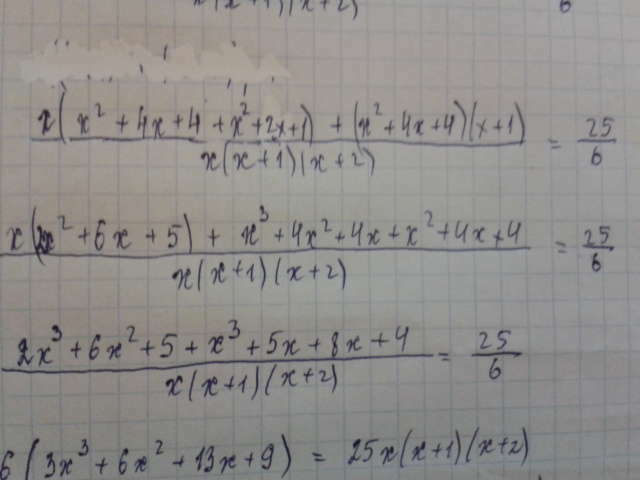 x(x+1)(x+2) 6
x(x² + 4x + 4 + x² + 2x + 1) + (x² + 4x + 4)(x + 1) / x(x+1)(x+2) = 25/6
x(2x² + 6x + 5) + x³ + 4x² + 4x + x² + 4x + 4 / x(x+1)(x+2) = 25/6
2x³ + 6x² + 5 + x³ + 5x + 8x + 4 / x(x+1)(x+2) = 25/6
6(3x³ + 6x² + 13x + 9) = 25x(x+1)(x+2)